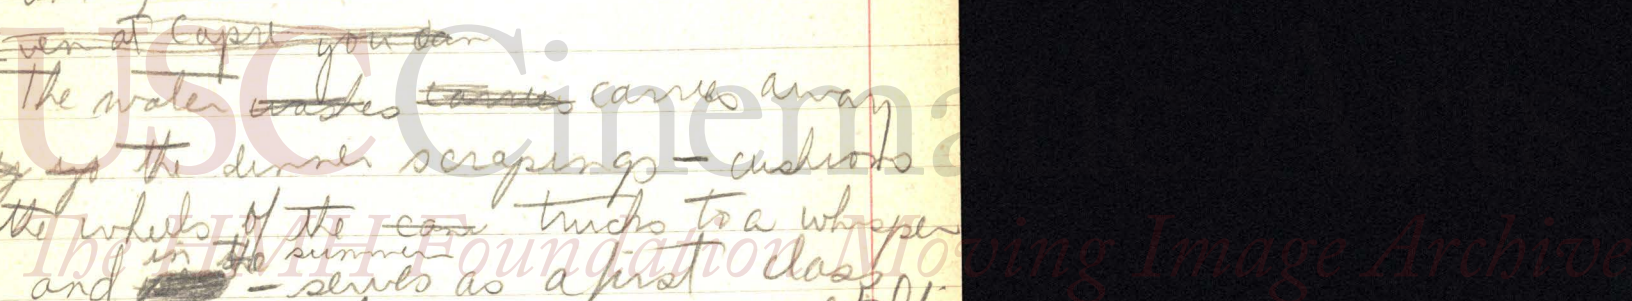 Even at Capri you can
The water washes carries carries away
go the dinner scrapings - cushions
the wheels of the cars trucks to a whisper
in the summer
and - serves as a first class
USC Cinematic
The HMH Foundation Moving Image Archive